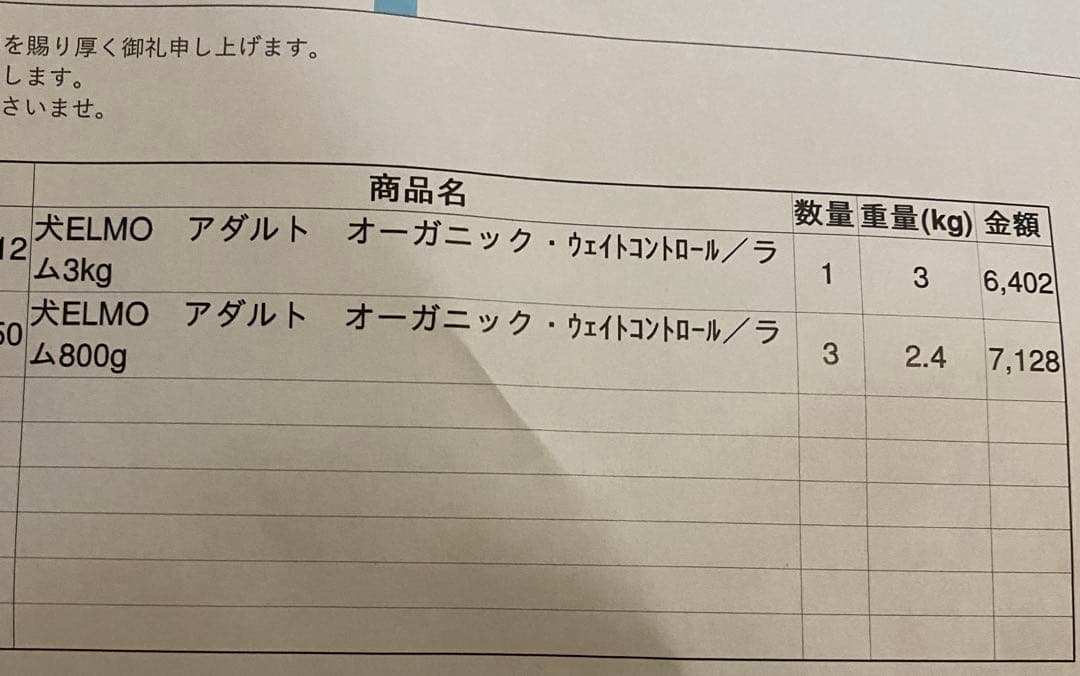 を賜り厚く御礼申し上げます。
します。
さいませ。
商品名 数量 重量(kg) 金額
12 犬ELMO　アダルト　オーガニック・ｳｪｲﾄｺﾝﾄﾛｰﾙ／ラ
ム3kg 1 3 6,402
50 犬ELMO　アダルト　オーガニック・ｳｪｲﾄｺﾝﾄﾛｰﾙ／ラ
ム800g 3 2.4 7,128